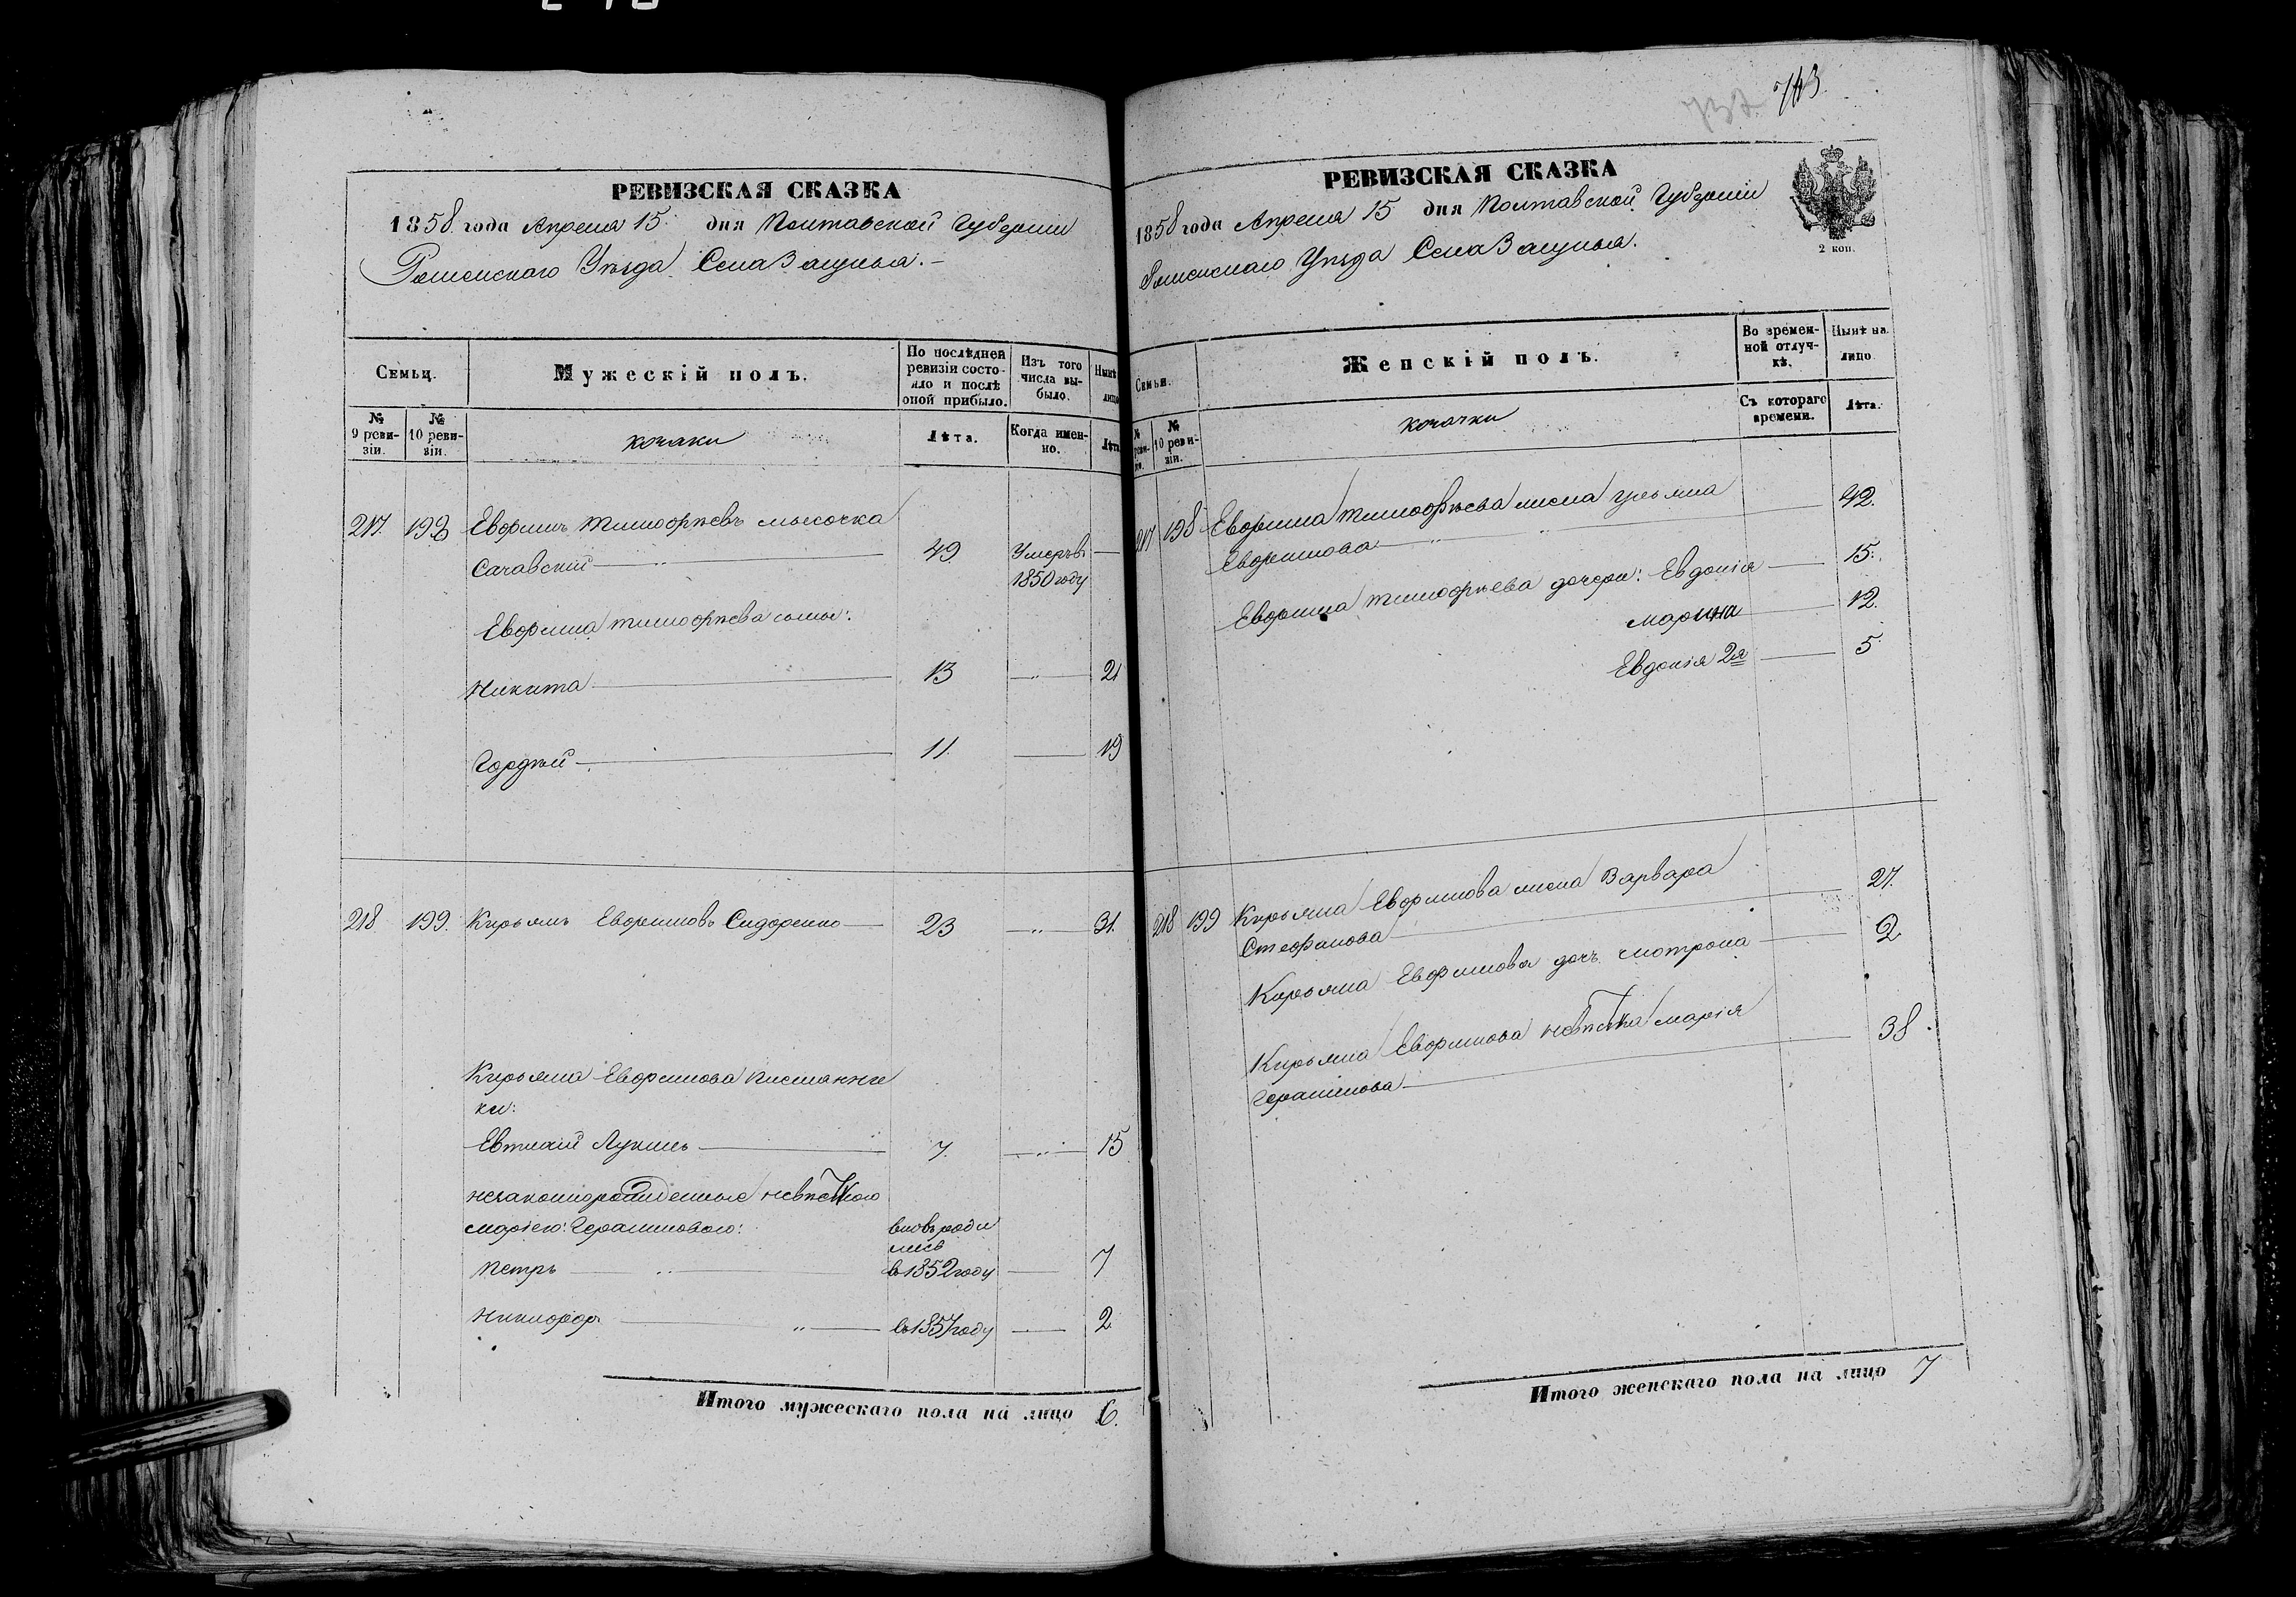 743
737
РЕВИЗСКАЯ СКАЗКА
1858 года Апреля 15 дня Полтавской Губерніи
Роменскаго Уѣзда Села Защитья.
Семьи.
Мужескій полъ.
По послѣдней ревизіи состояло и послѣ оной прибыло.
Изъ того числа выбыло.
Нынѣ
лицо
№ 9 ревизіи.
№ 10 ревизіи.
козаки
Лѣта.
Когда именно.
Лѣта
217. 198 Евфимъ Тимофѣевъ
49 Умеръ въ 1850 году
Евфима Тимофѣева сыны:
Никита 13 21
Гордѣй 11. 19
218 199. Кирьянъ Евфимовъ Сидоренко 23 31.
Кирьяна Евфимова племянни
ки:
Евтихій Лукинъ 7. 15
незаконнорожденные невѣсткою
Маріею Герасимовою:
вновь роди
лись
Петръ в 1852 году 7
Никифоръ в 1857 году 2
Итого мужескаго пола на лицо 6.
РЕВИЗСКАЯ СКАЗКА
1858 года Апреля 15 дня Полтавской Губерніи
Роменскаго Уѣзда Села
2 коп.
Семьи.
Женскій полъ.
Во временной отлучкѣ.
Нынѣ на лицо
№ реви-зіи.
№ 10 ревизіи.
козачки
Съ котораго времени.
Лѣта.
217 198 Евфима Тимофѣева жена Ульяна
Ефимова 42.
Евфима Тимофѣева дочери: Евдокія 15.
Марина 12.
Евдокія 2я 5
218 199 Кирьяна Евфимова жена Варвара
Стефанова 27.
Кирьяна Евфимова дочь Мотрона 2
Кирьяна Евфимова невѣстка Марія
Герасимова 38.
Итого женскаго пола на лицо 7